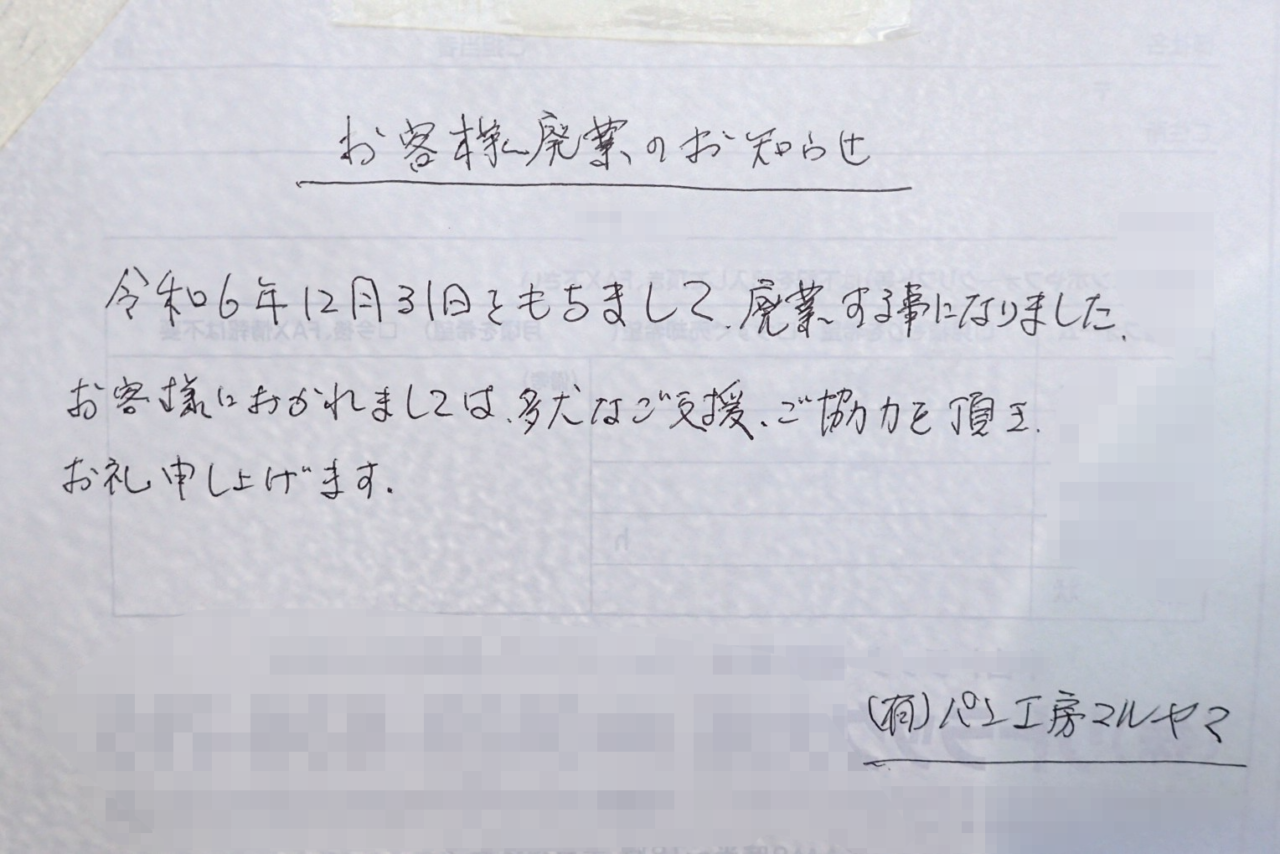 お客様廃業のお知らせ
令和6年12月31日をもちまして、廃業する事になりました。
お客様におかれましては、多大なご支援、ご協力を頂き、
お礼申し上げます。
(有)パン工房マルヤマ